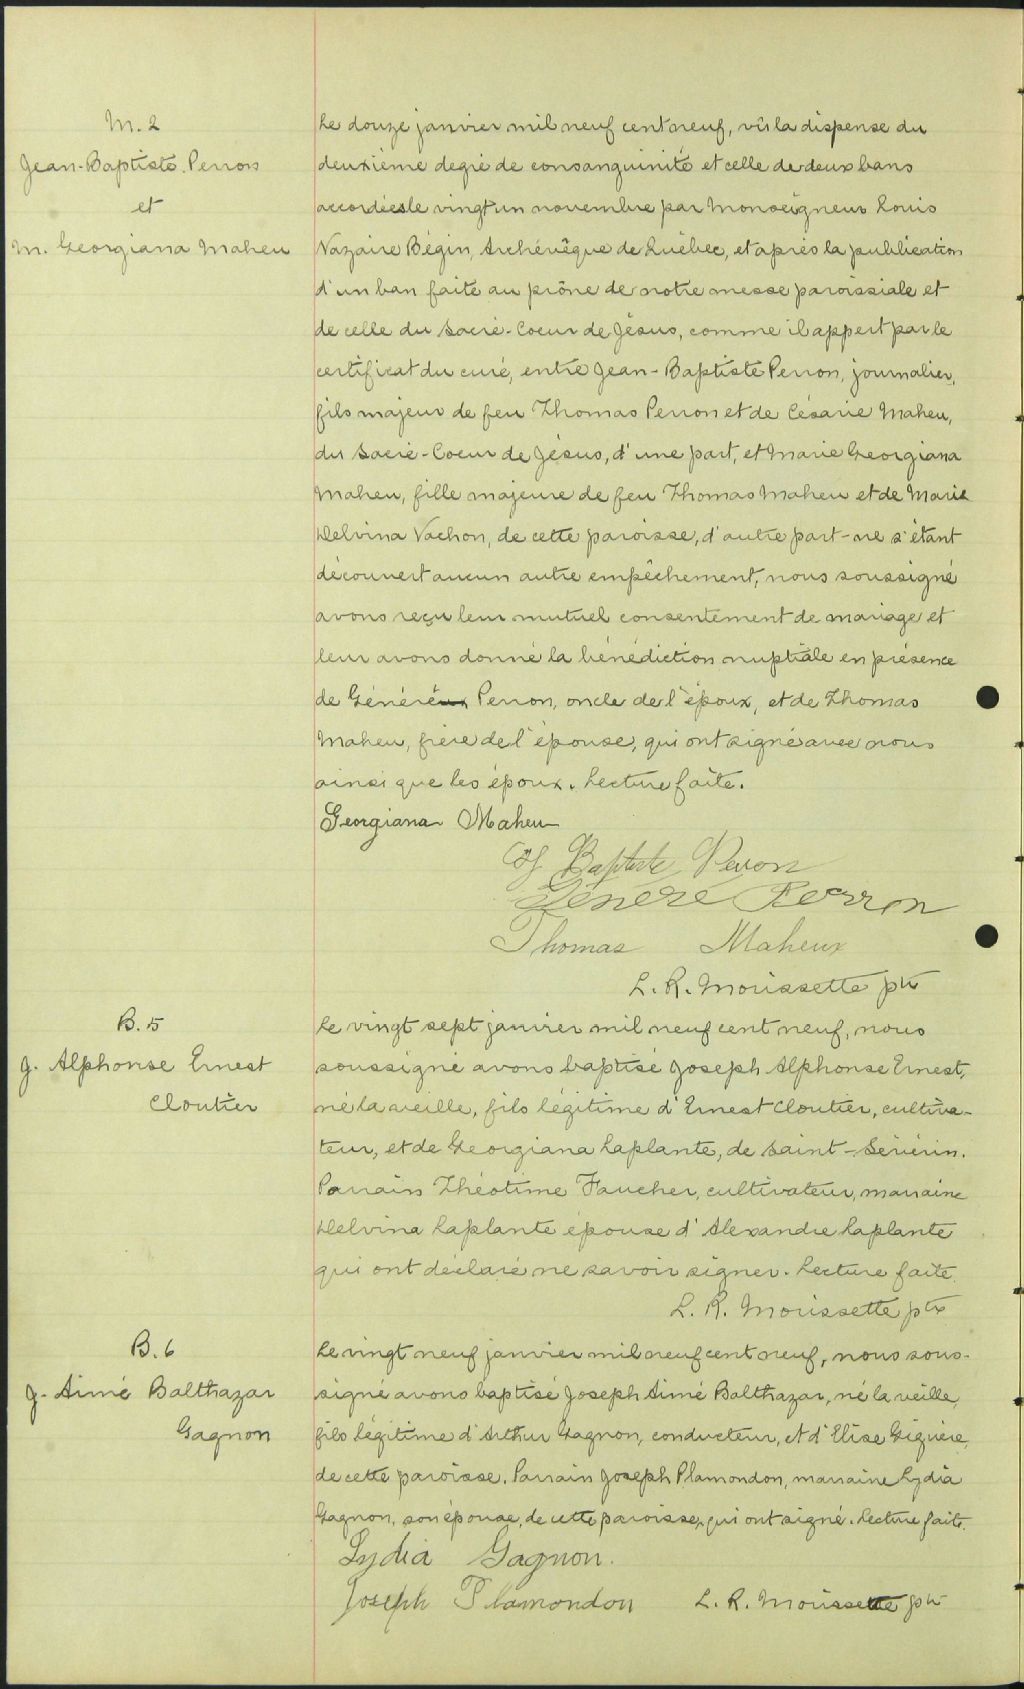 M. 2
Jean-Baptiste Perron
et
M. Georgiana Maheu
Le douze janvier mil neuf cent neuf, vu la dispense du
deuxième degré de consanguinité et celle de deux bans
accordées le vingt un novembre par Monseigneur Louis
Nazaire Bégin, Archévêque de Québec, et après la publication
d'un ban faite au prône de notre messe paroissiale et
de celle du Sacré-Coeur de Jésus, comme il appert par le
certificat du curé, entre Jean-Baptiste Perron, journalier,
fils majeur de feu Thomas Perron et de Césarie Maheu,
du Sacré-Coeur de Jésus, d'une part, et Marie Georgiana
Maheu, fille majeure de feu Thomas Maheu et de Marie
Delvina Vachon, de cette paroisse, d'autre part - ne s'étant
découvert aucun autre empêchement, nous soussigné
avons reçu leur mutuel consentement de mariage et
leur avons donné la bénédiction nuptiale en présence
de Généré Perron, oncle de l'époux, et de Thomas
Maheu, frère de l'épouse, qui ont signé avec nous
ainsi que les époux. Lecture faite.
Georgiana Maheu
Baptiste Perron
Généré Perron
Thomas Maheux
L. R. Morissette ptre
B. 5
J. Alphonse Ernest
Cloutier
Le vingt sept janvier mil neuf cent neuf, nous
soussigné avons baptisé Joseph Alphonse Ernest,
né la veille, fils légitime d'Ernest Cloutier, cultiva-
teur, et de Georgiana Laplante, de Saint-Séverin.
Parrain Théotime Faucher, cultivateur, marraine
Delvina Laplante épouse d'Alexandre Laplante
qui ont déclaré ne savoir signer. Lecture faite.
L. R. Morissette ptre
B. 6
J. Aimé Balthazar
Gagnon
Le vingt neuf janvier mil neuf cent neuf, nous sous-
signé avons baptisé Joseph Aimé Balthazar, né la veille,
fils légitime d'Arthur Gagnon, conducteur, et d'Elise Giguère,
de cette paroisse. Parrain Joseph Plamondon, marraine Lydia
Gagnon, son épouse, de cette paroisse, qui ont signé. Lecture faite.
Lydia Gagnon.
Joseph Plamondon L. R. Morissette ptre